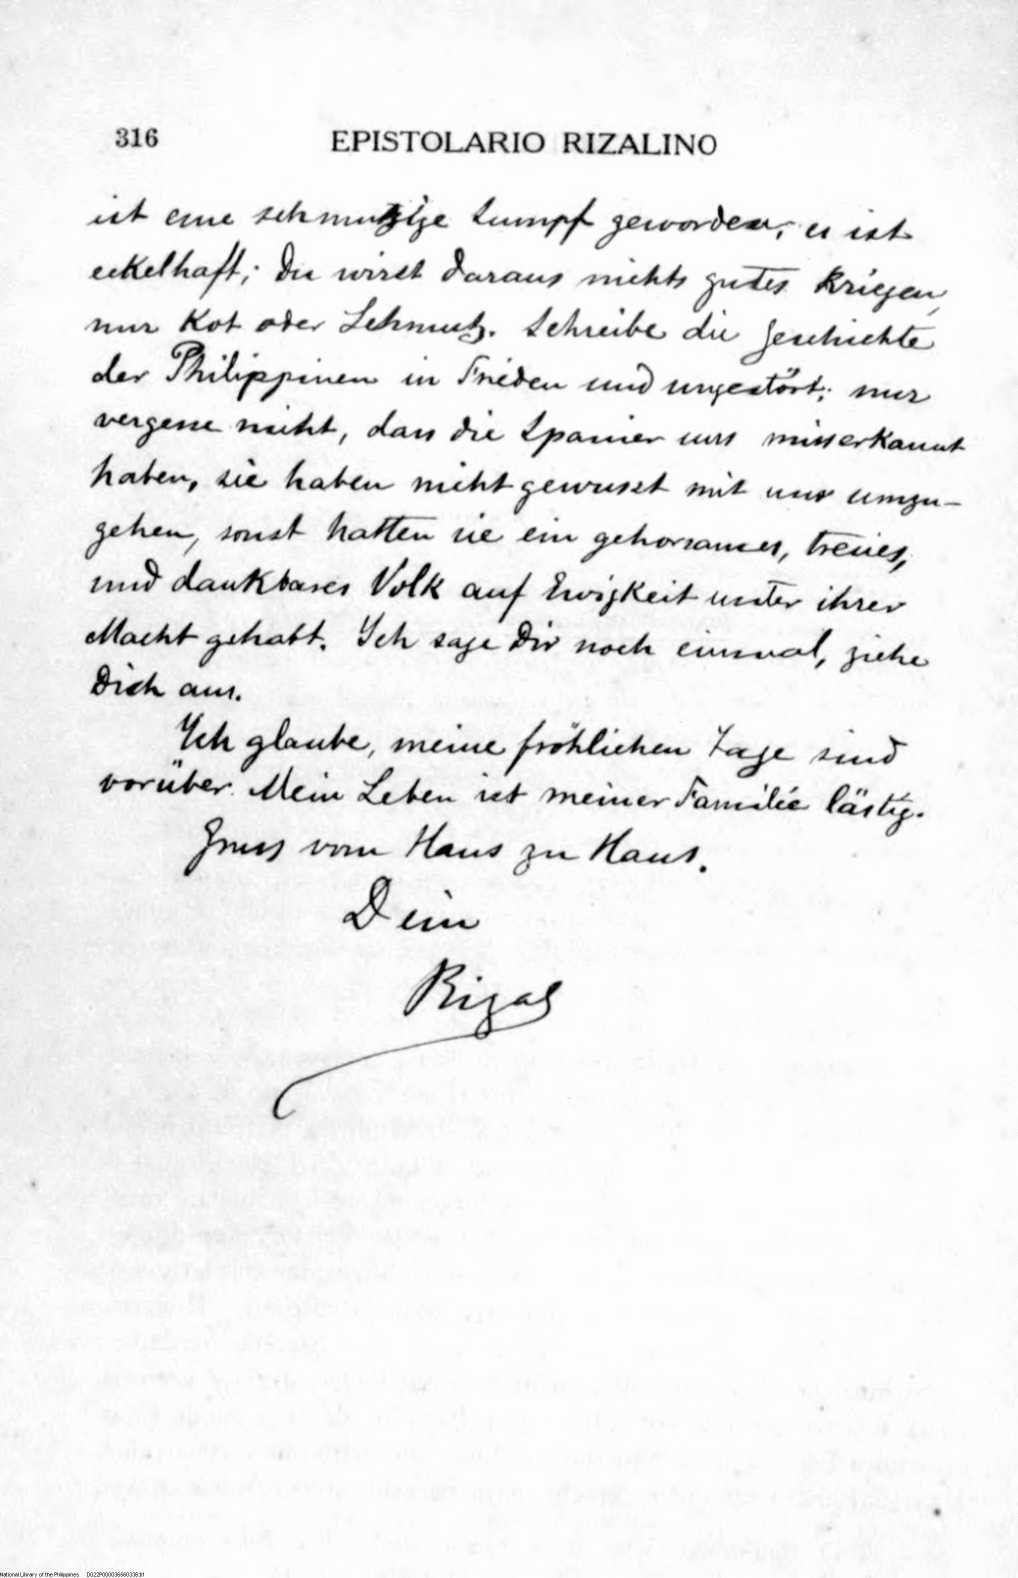 316 EPISTOLARIO RIZALINO
ist eine schmutzige Sumpf geworden; es ist
eckelhaft; Du wirst daraus nichts gutes kriegen,
nur Kot oder Schmutz. Schreibe die Geschichte
der Philippinen in Frieden und ungestört; nur
vergesse nicht, dass die Spanier uns misserkannt
haben, sie haben nicht gewusst mit uns umzu-
gehen, sonst hatten sie ein gehorsames, treues,
und dankbares Volk auf Ewigkeit unter ihrer
Macht gehabt. Ich sage Dir noch einmal, ziehe
Dich aus.
Ich glaube, meine fröhlichen Tage sind
vorüber. Mein Leben ist meiner Familie lästig.
Gruss vom Haus zu Haus.
Dein
Rizal
National Library of the Philippines